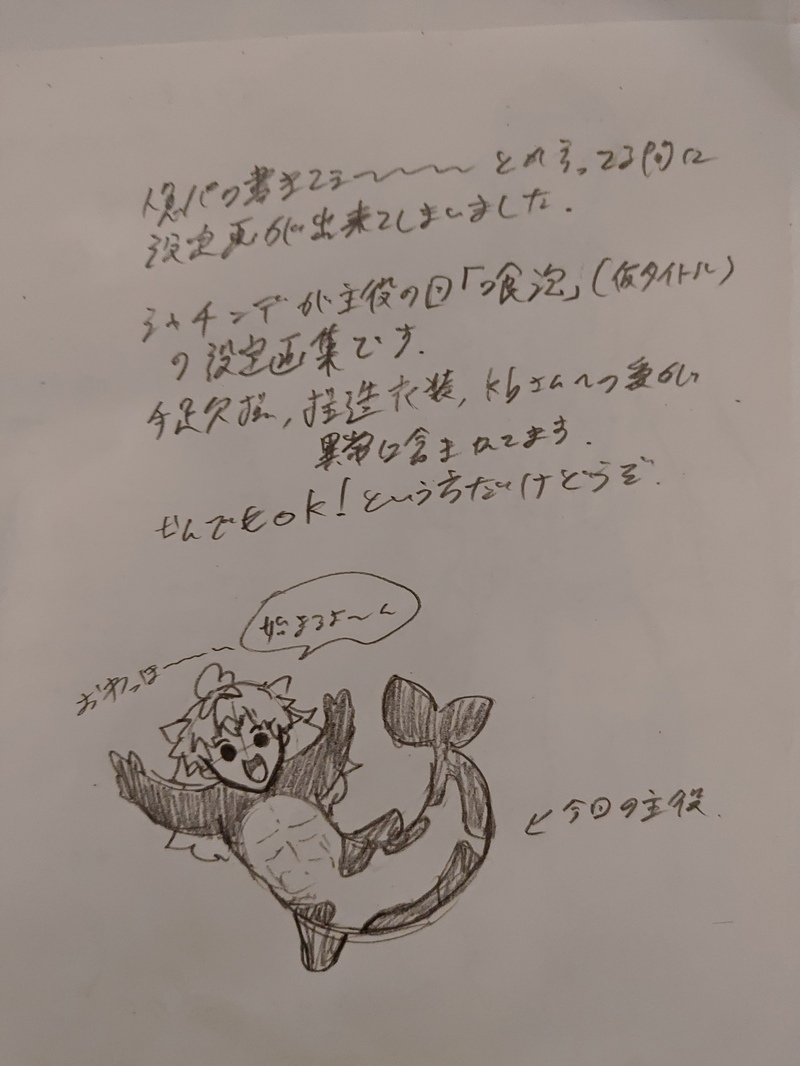 人魚パロ書きてえ〜〜〜〜 とか言ってる内に
設定画が出来てしまいました.
シャチンデが主役の回「喰泡」(仮タイトル)
の設定画集です.
手足欠損, 捏造衣装, kbさんへの愛が
異常に含まれてます.
なんでもok!という方だけどうぞ.
始まるよ〜ん
おわっほ〜〜〜
← 今回の主役.